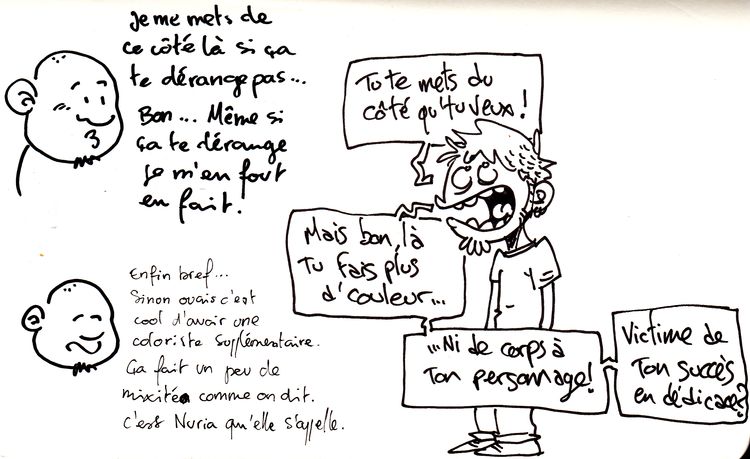 Je me mets de
ce côté là si ça
te dérange pas...
Bon... Même si
ça te dérange
je m'en fout
en fait.
Tu te mets du
côté qu'tu veux!
Mais bon, là
Tu fais plus
d'couleur...
...Ni de corps à
Ton personnage!
Victime de
Ton succès
en dédicaces?
Enfin bref...
Sinon ouais c'est
cool d'avoir une
coloriste supplémentaire.
Ça fait un peu de
mixité comme on dit.
C'est Nuria qu'elle s'appelle.